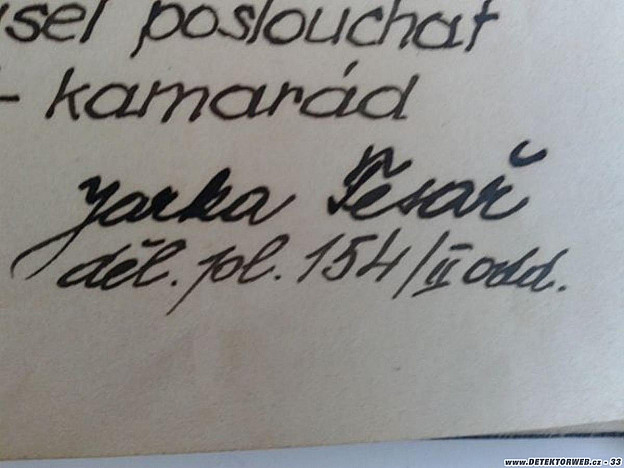 usel poslouchat
- kamarád
Jarka Tesař
děl. pl. 154/II odd.
www.DETEKTORWEB.cz - 33